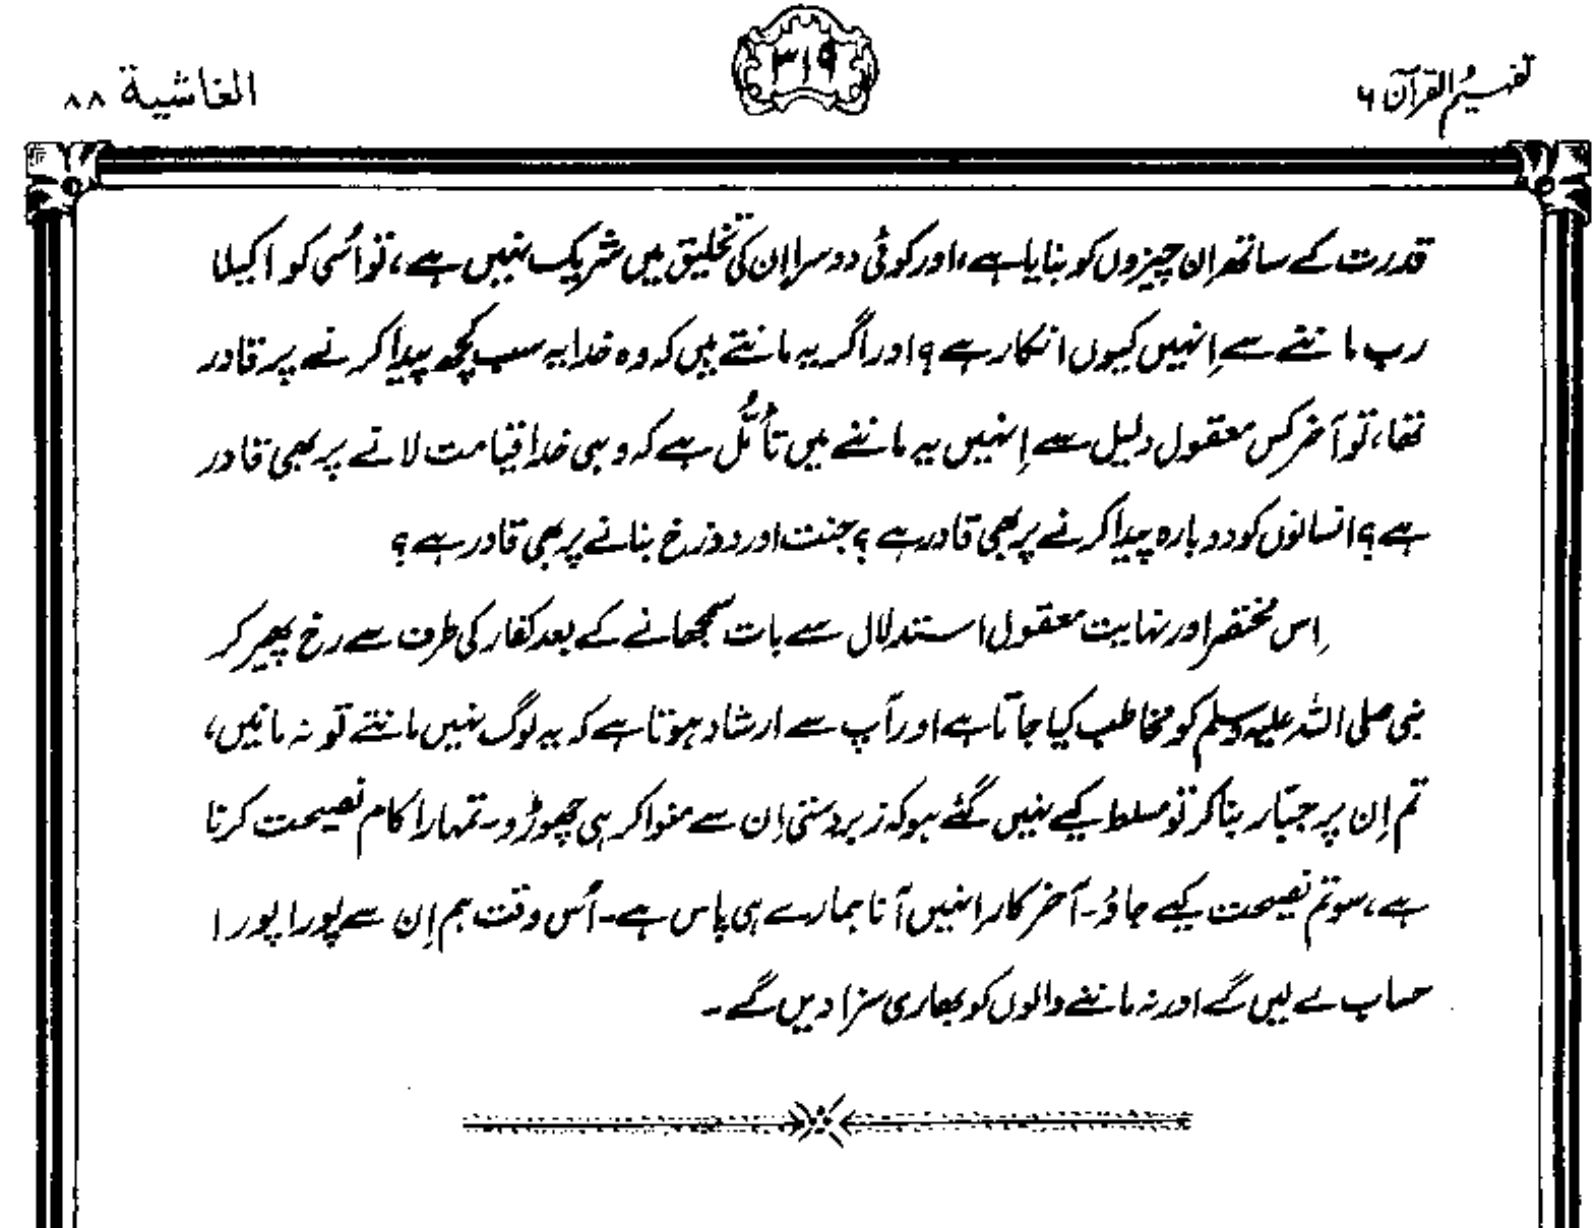 تفہیم القرآن ۶
۳۱۹
الغاشیة ۸۸
قدرت کے ساتھ اِن چیزوں کو بنایا ہے، اور کوئی دوسرا اِن کی تخلیق میں شریک نہیں ہے، تو اُسی کو اکیلا
رب ماننے سے اِنہیں کیوں انکار ہے؟ اور اگر یہ مانتے ہیں کہ وہ خدا یہ سب کچھ پیدا کرنے پر قادر
تھا، تو آخر کس معقول دلیل سے اِنہیں یہ ماننے میں تأمُّل ہے کہ وہی خدا قیامت لانے پر بھی قادر
ہے؟ انسانوں کو دوبارہ پیدا کرنے پر بھی قادر ہے؟ جنت اور دوزخ بنانے پر بھی قادر ہے؟
اِس مختصر اور نہایت معقول استدلال سے بات سمجھانے کے بعد کفار کی طرف سے رخ پھیر کر
نبی صلی اللہ علیہ وسلم کو مخاطب کیا جاتا ہے اور آپ سے ارشاد ہوتا ہے کہ یہ لوگ نہیں مانتے تو نہ مانیں،
تم اِن پر جبّار بنا کر تو مسلط کیے نہیں گئے ہو کہ زبردستی اِن سے منوا کر ہی چھوڑو۔ تمہارا کام نصیحت کرنا
ہے، سو تم نصیحت کیے جاؤ۔ آخرکار انہیں آنا ہمارے ہی پاس ہے۔ اُس وقت ہم اِن سے پورا پورا
حساب لے لیں گے اور نہ ماننے والوں کو بھاری سزا دیں گے۔